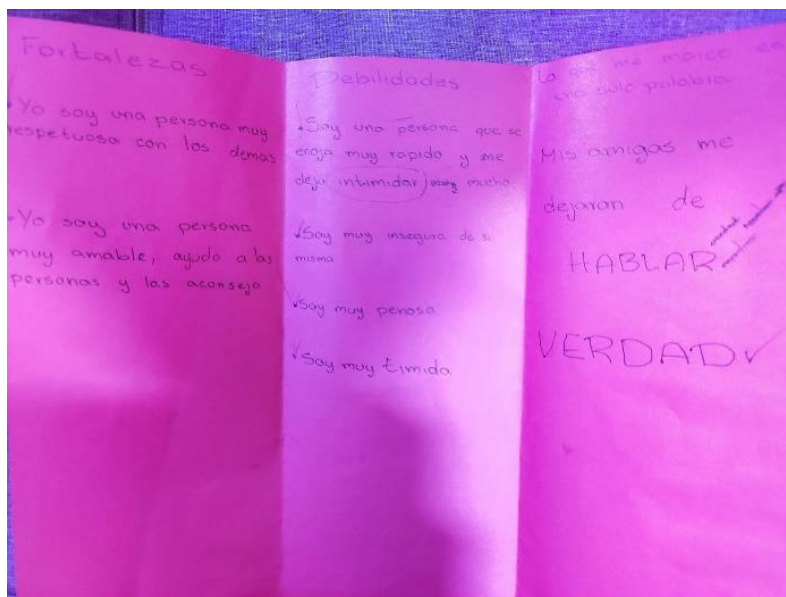 Fortalezas
Yo soy una persona muy
respetuosa con los demas
Yo soy una persona
muy amable, ayudo a las
personas y las aconsejo
Debilidades
Soy una persona que se
enoja muy rapido y me
deja intimidar mucho
Soy muy insegura de si
misma
Soy muy penosa
Soy muy timida
Lo que me marco en
una sola palabra
Mis amigas me
dejaron de
HABLAR
VERDAD